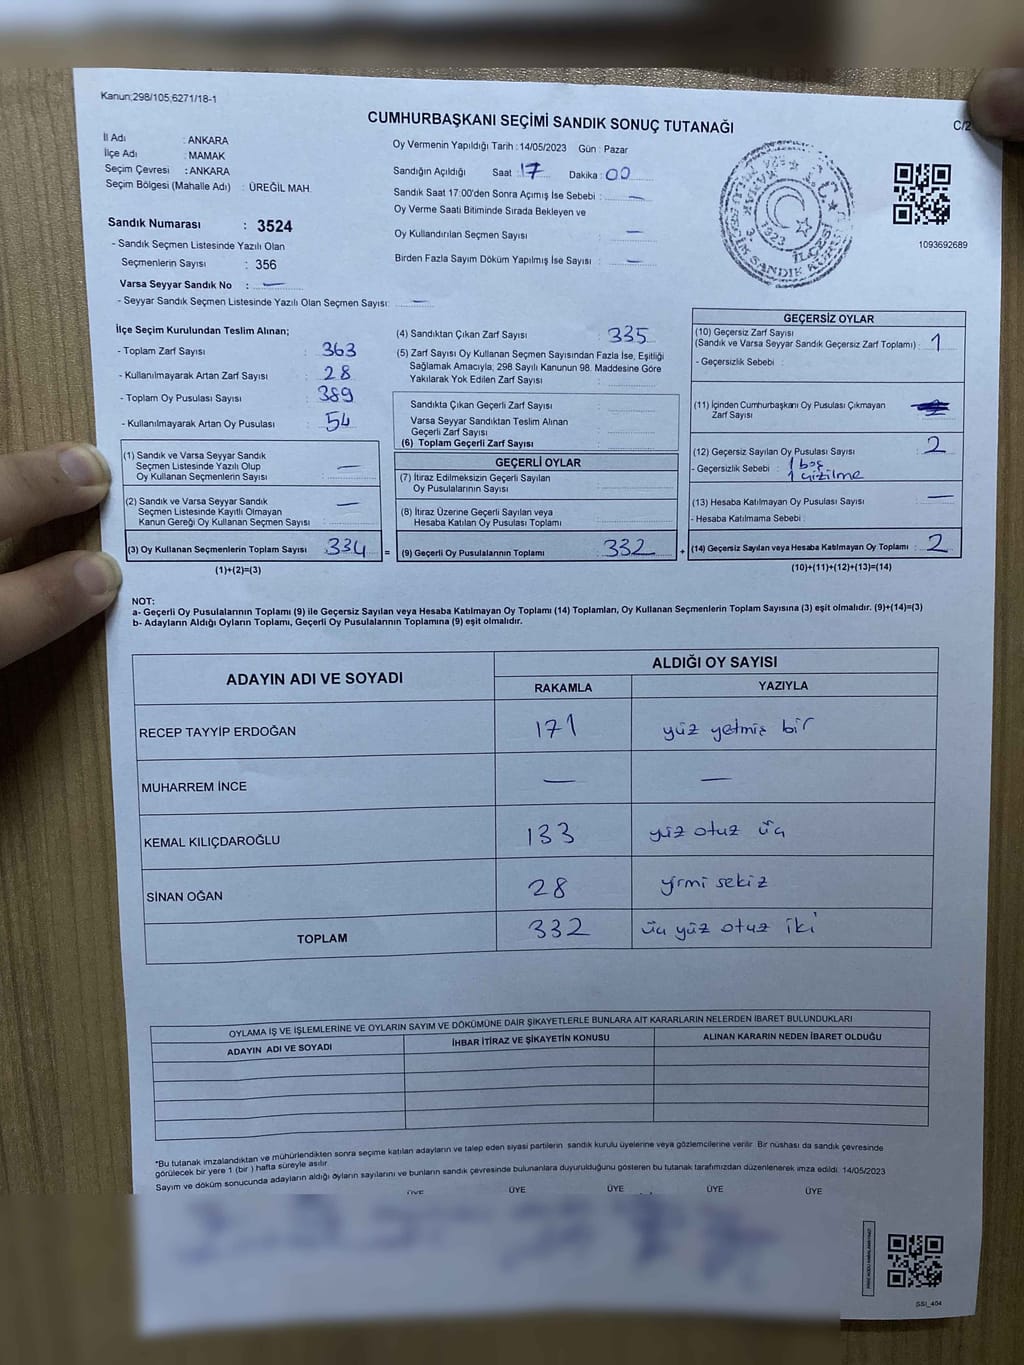 Kanun;298/105,6271/18-1
CUMHURBAŞKANI SEÇİMİ SANDIK SONUÇ TUTANAĞI
C/2
İl Adı : ANKARA
İlçe Adı : MAMAK
Seçim Çevresi : ANKARA
Seçim Bölgesi (Mahalle Adı) : ÜREĞİL MAH.
Sandık Numarası : 3524
- Sandık Seçmen Listesinde Yazılı Olan
Seçmenlerin Sayısı : 356
Varsa Seyyar Sandık No : —
- Seyyar Sandık Seçmen Listesinde Yazılı Olan Seçmen Sayısı: —
Oy Vermenin Yapıldığı Tarih : 14/05/2023 Gün : Pazar
Sandığın Açıldığı Saat : 17 Dakika : 00
Sandık Saat 17:00'den Sonra Açımış İse Sebebi : —
Oy Verme Saati Bitiminde Sırada Bekleyen ve
Oy Kullandırılan Seçmen Sayısı : —
Birden Fazla Sayım Döküm Yapılmış İse Sayısı : —
T.C.
1923
1093692689
İlçe Seçim Kurulundan Teslim Alınan;
- Toplam Zarf Sayısı : 363
- Kullanılmayarak Artan Zarf Sayısı : 28
- Toplam Oy Pusulası Sayısı : 389
- Kullanılmayarak Artan Oy Pusulası : 54
(1) Sandık ve Varsa Seyyar Sandık
Seçmen Listesinde Yazılı Olup
Oy Kullanan Seçmenlerin Sayısı : —
(2) Sandık ve Varsa Seyyar Sandık
Seçmen Listesinde Kayıtlı Olmayan
Kanun Gereği Oy Kullanan Seçmen Sayısı : —
(3) Oy Kullanan Seçmenlerin Toplam Sayısı : 334
(1)+(2)=(3)
=
(4) Sandıktan Çıkan Zarf Sayısı : 335
(5) Zarf Sayısı Oy Kullanan Seçmen Sayısından Fazla İse, Eşitliği
Sağlamak Amacıyla; 298 Sayılı Kanunun 98. Maddesine Göre
Yakılarak Yok Edilen Zarf Sayısı :
Sandıkta Çıkan Geçerli Zarf Sayısı :
Varsa Seyyar Sandıktan Teslim Alınan
Geçerli Zarf Sayısı :
(6) Toplam Geçerli Zarf Sayısı :
GEÇERLİ OYLAR
(7) İtiraz Edilmeksizin Geçerli Sayılan
Oy Pusulalarının Sayısı :
(8) İtiraz Üzerine Geçerli Sayılan veya
Hesaba Katılan Oy Pusulası Toplamı :
(9) Geçerli Oy Pusulalarının Toplamı : 332
+
GEÇERSİZ OYLAR
(10) Geçersiz Zarf Sayısı
(Sandık ve Varsa Seyyar Sandık Geçersiz Zarf Toplamı) : 1
- Geçersizlik Sebebi :
(11) İçinden Cumhurbaşkanı Oy Pusulası Çıkmayan
Zarf Sayısı
(12) Geçersiz Sayılan Oy Pusulası Sayısı : 2
- Geçersizlik Sebebi : 1 boş
1 çizilme
(13) Hesaba Katılmayan Oy Pusulası Sayısı : —
- Hesaba Katılmama Sebebi :
(14) Geçersiz Sayılan veya Hesaba Katılmayan Oy Toplamı : 2
(10)+(11)+(12)+(13)=(14)
NOT:
a- Geçerli Oy Pusulalarının Toplamı (9) ile Geçersiz Sayılan veya Hesaba Katılmayan Oy Toplamı (14) Toplamları, Oy Kullanan Seçmenlerin Toplam Sayısına (3) eşit olmalıdır. (9)+(14)=(3)
b- Adayların Aldığı Oyların Toplamı, Geçerli Oy Pusulalarının Toplamına (9) eşit olmalıdır.
ADAYIN ADI VE SOYADI
ALDIĞI OY SAYISI
RAKAMLA YAZIYLA
RECEP TAYYİP ERDOĞAN 171 yüz yetmiş bir
MUHARREM İNCE — —
KEMAL KILIÇDAROĞLU 133 yüz otuz üç
SİNAN OĞAN 28 yirmi sekiz
TOPLAM 332 üç yüz otuz iki
OYLAMA İŞ VE İŞLEMLERİNE VE OYLARIN SAYIM VE DÖKÜMÜNE DAİR ŞİKAYETLERLE BUNLARA AİT KARARLARIN NELERDEN İBARET BULUNDUKLARI
ADAYIN ADI VE SOYADI İHBAR İTİRAZ VE ŞİKAYETİN KONUSU ALINAN KARARIN NEDEN İBARET OLDUĞU
*Bu tutanak imzalandıktan ve mühürlendikten sonra seçime katılan adayların ve talep eden siyasi partilerin sandık kurulu üyelerine veya gözlemcilerine verilir. Bir nüshası da sandık çevresinde
görülecek bir yere 1 (bir) hafta süreyle asılır.
Sayım ve döküm sonucunda adayların aldığı oyların sayılarını ve bunların sandık çevresinde bulunanlara duyurulduğunu gösteren bu tutanak tarafımızdan düzenlenerek imza edildi. 14/05/2023
ÜYE ÜYE ÜYE ÜYE ÜYE
SSI_404